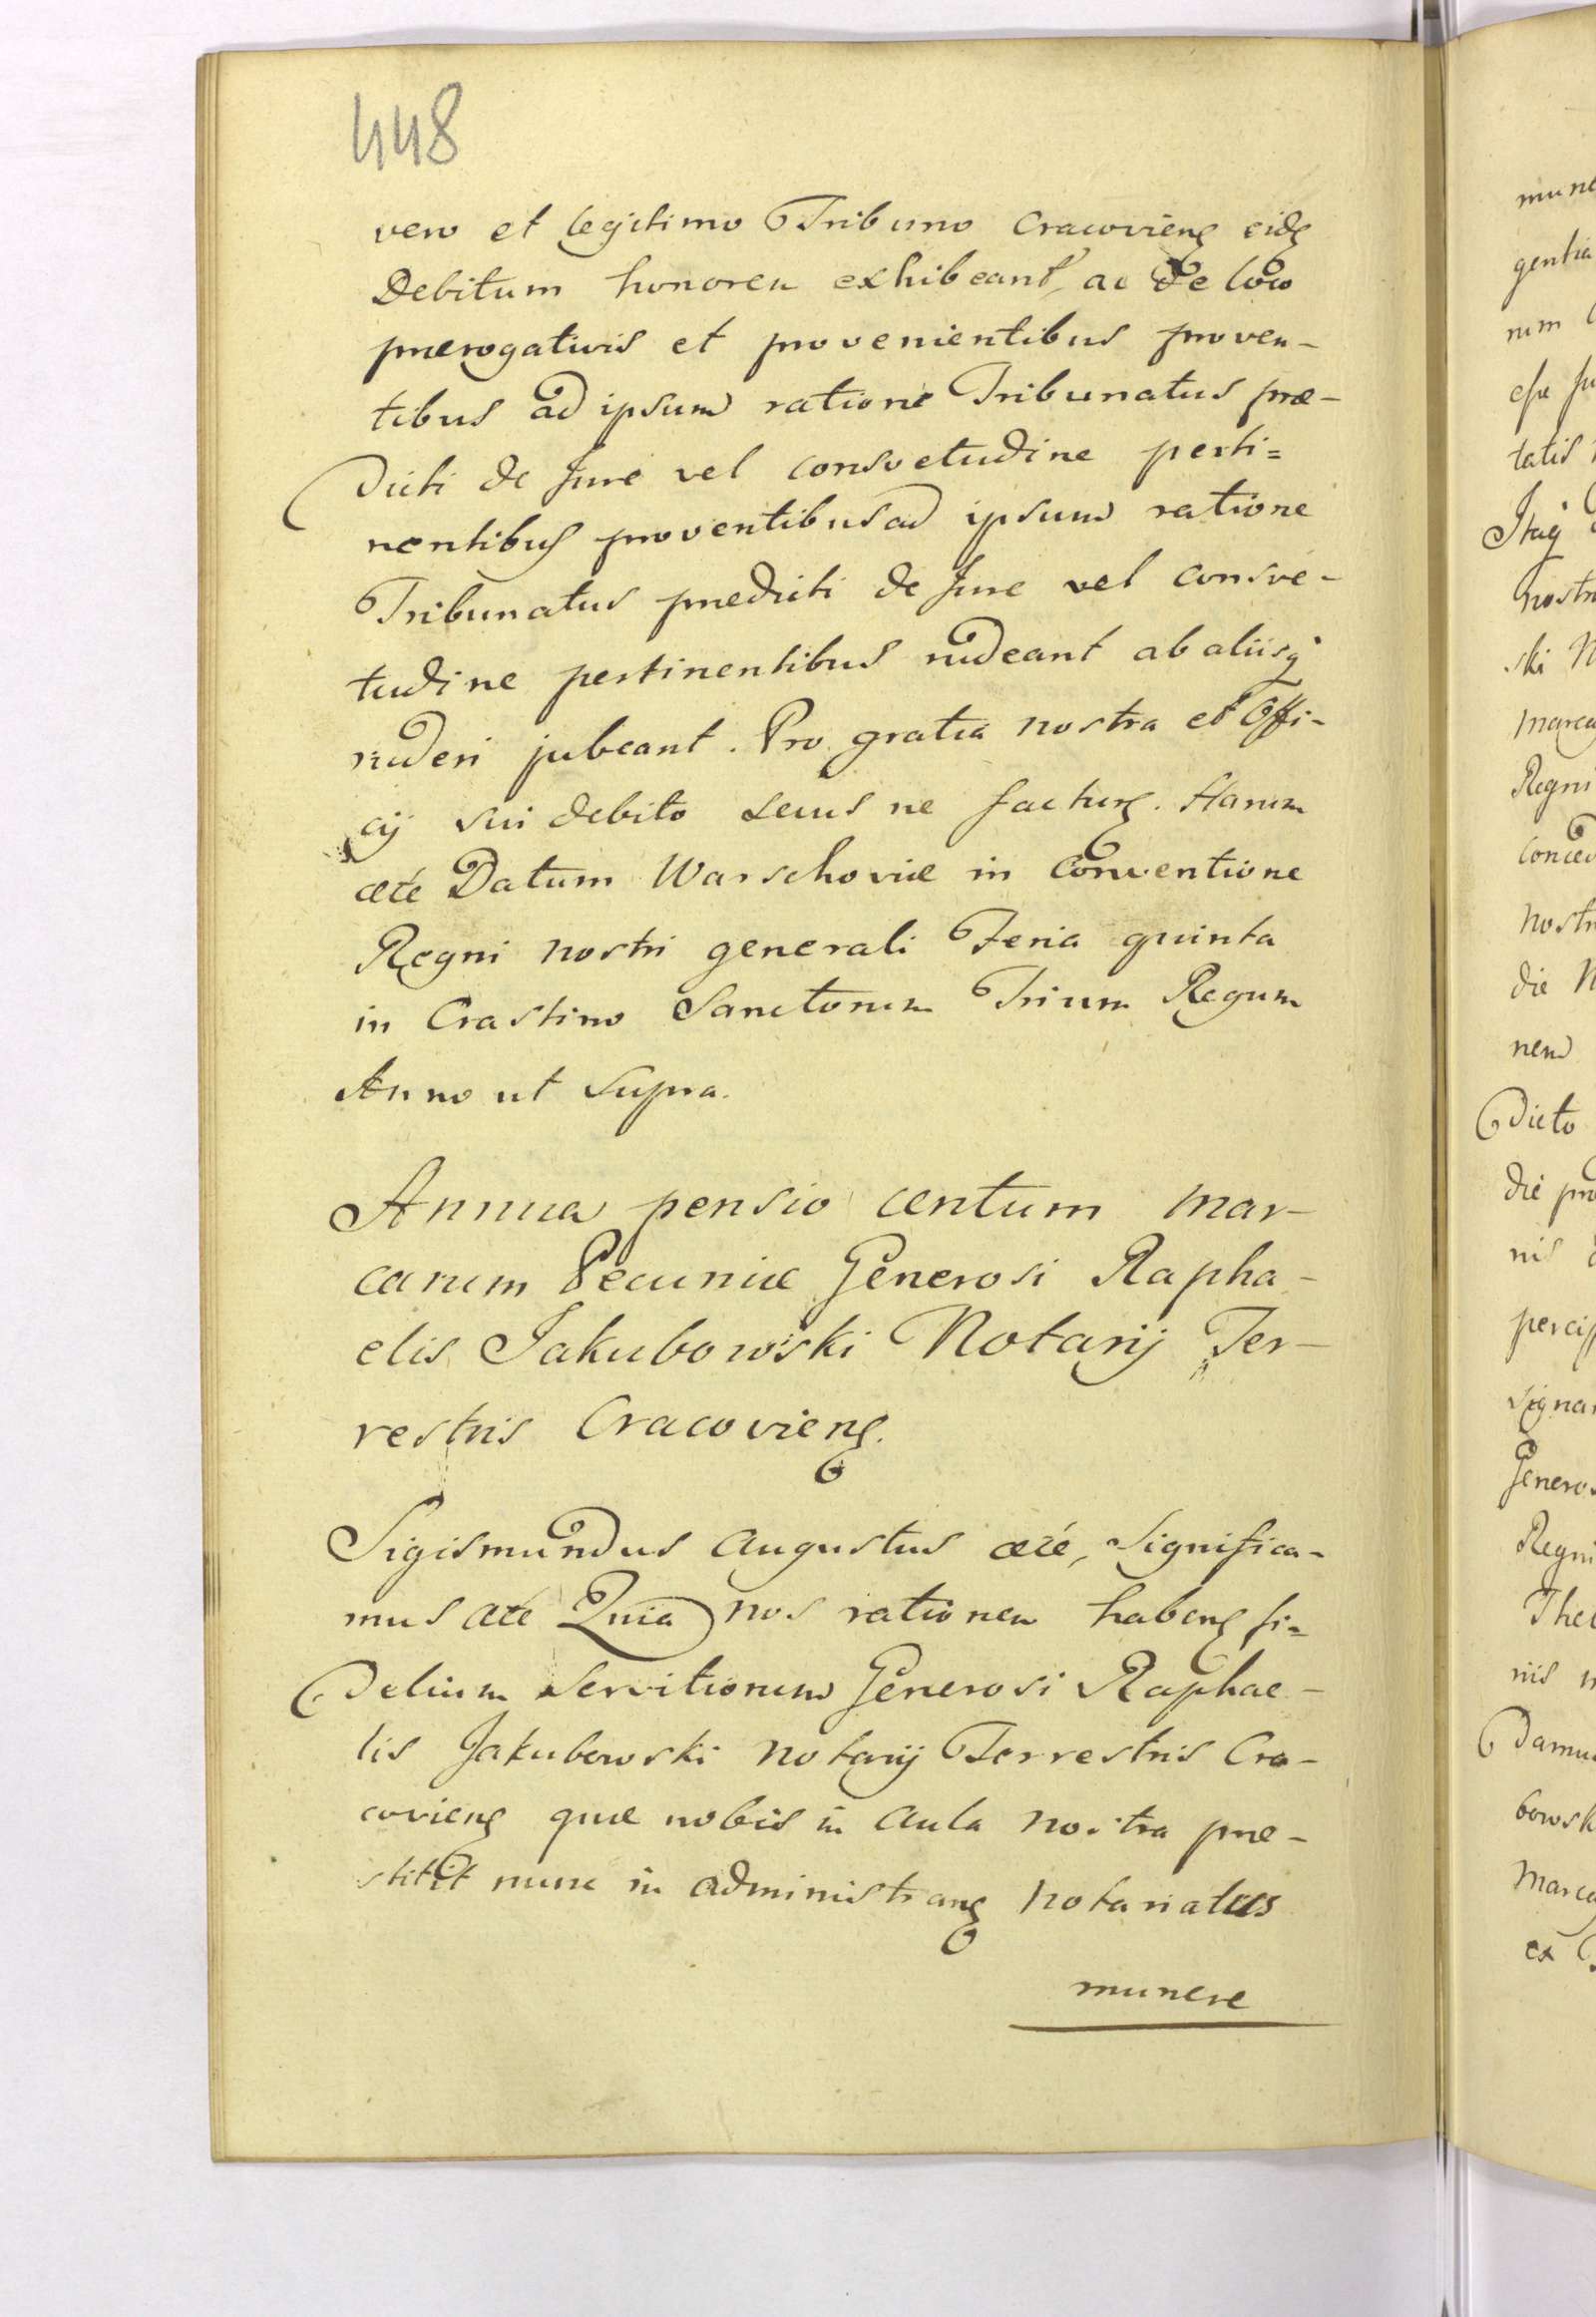 448
vero et legitimo Tribuno Cracovieng eidg
Debitum honorem exhibeant, ac de loco
prærogativis et provenientibus proven-
tibus ad ipsum ratione Tribunatus præ-
dicti de Jure vel consvetudine perti=
nentibus proventibus ad ipsum ratione
Tribunatus prædicti de Jure vel consve-
tudine pertinentibus rudeant ab aliisq
rideri jubeant. Pro gratia nostra et Offi-
cij sui debito secus ne facturg. Harum
ætć Datum Warschoviæ in Conventione
Regni nostri generali Feria quinta
in Crastino Sanctorum Trium Regum
Anno ut Supra.
Annua pensio centum mar-
carum Pecuniæ Generosi Rapha-
elis Jakubowski Notarij Ter-
restris Cracovieng.
Sigismundus Augustus ætć, Significa-
mus ætć Quia nos rationem habeng fi=
delium servitiorum Generosi Raphae-
lis Jakubowski notarij Terrestris Cra-
covieng quæ nobis in Aula nostra præ-
stitit nunc in administrang notariatus
munere
mune
gentia
rum
esse
tatis
Itaq
nostr
ski N
marca
Regni
conced
nostr
die N
nem
dicto
die pro
nis
percip
signa
Genero
Regni
The
nis
Damu
bowsk
Marca
ex